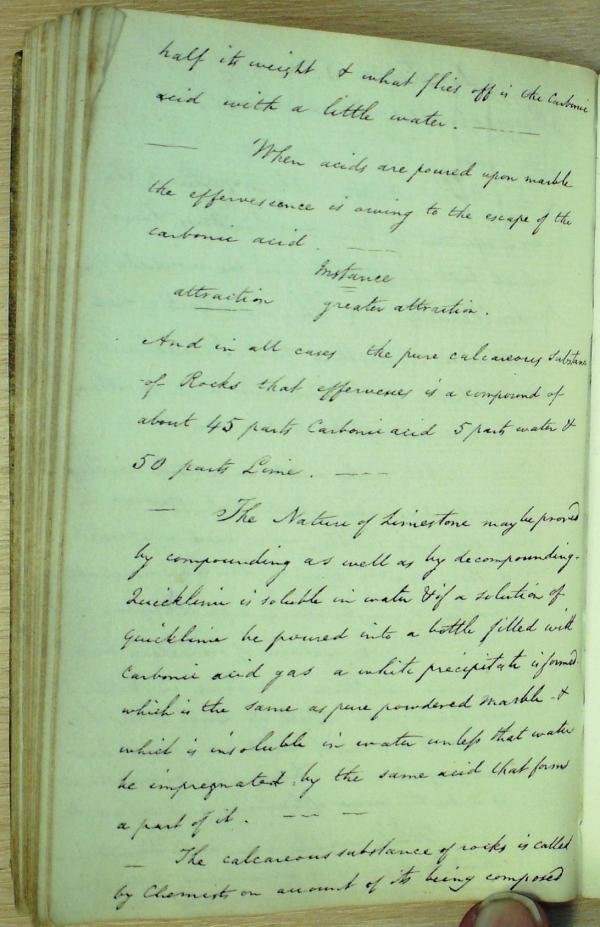 half its weight & what flies off is the Carbonic
acid with a little water. ——
— When acids are poured upon marble
the effervescence is owing to the escape of the
carbonic acid. ——
Instance
attraction greater attraction.
And in all cases the pure calcareous substance
of Rocks that effervesces is a compound of
about 45 parts Carbonic acid 5 parts water &
50 parts Lime. ——
— The Nature of Limestone may be proved
by compounding as well as by decompounding.
Quicklime is soluble in water & if a solution of
Quicklime be poured into a bottle filled with
Carbonic acid gas a white precipitate is formed
which is the same as pure powdered Marble &
which is insoluble in water unless that water
be impregnated by the same acid that forms
a part of it. — — —
— The calcareous substance of rocks is called
by Chemists on account of its being composed